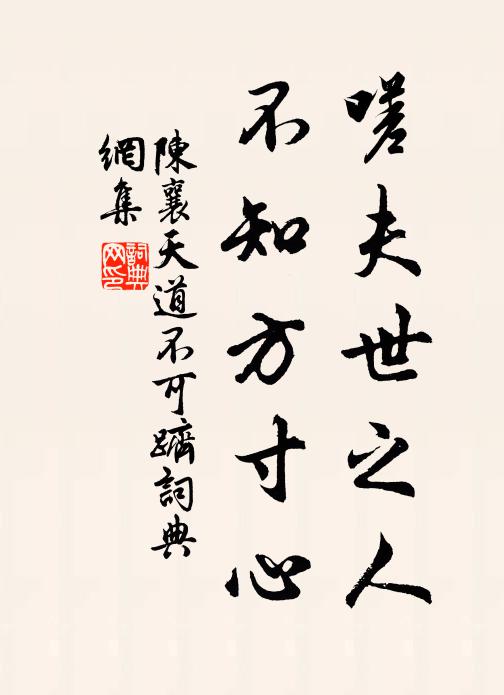 嗟夫世之人
不知方寸心
陳襄天道不可躋詞典
網集
詞典
网印